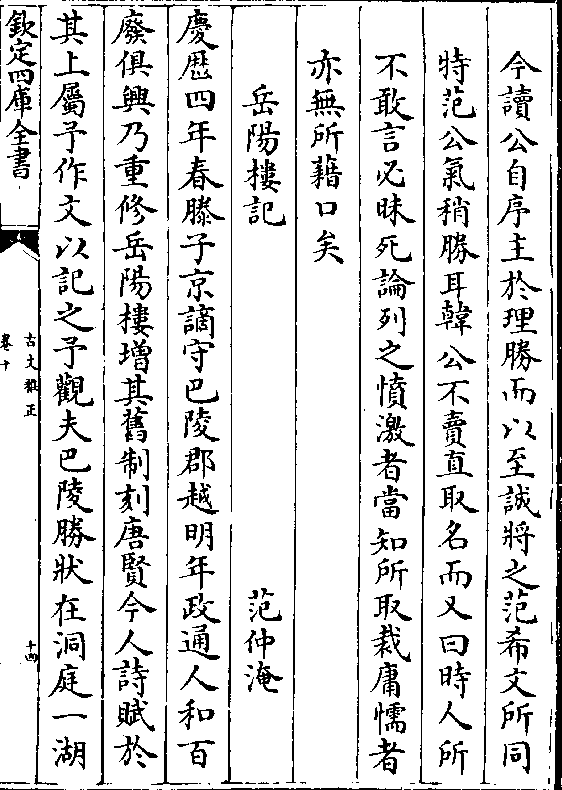 今讀公自序主於理勝而以至誠將之范希文所同
特范公氣稍勝耳韓公不賣直取名而又曰時人所
不敢言必昧死論列之憤激者當知所取裁庸懦者
亦無所藉口矣
岳陽樓記 范仲淹
慶歷四年春滕子京謫守巴陵郡越明年政通人和百
廢俱興乃重修岳陽樓增其舊制刻唐賢今人詩賦於
其上屬予作文以記之予觀夫巴陵勝狀在洞庭一湖
欽定四庫全書
古文雅正
卷十
十四